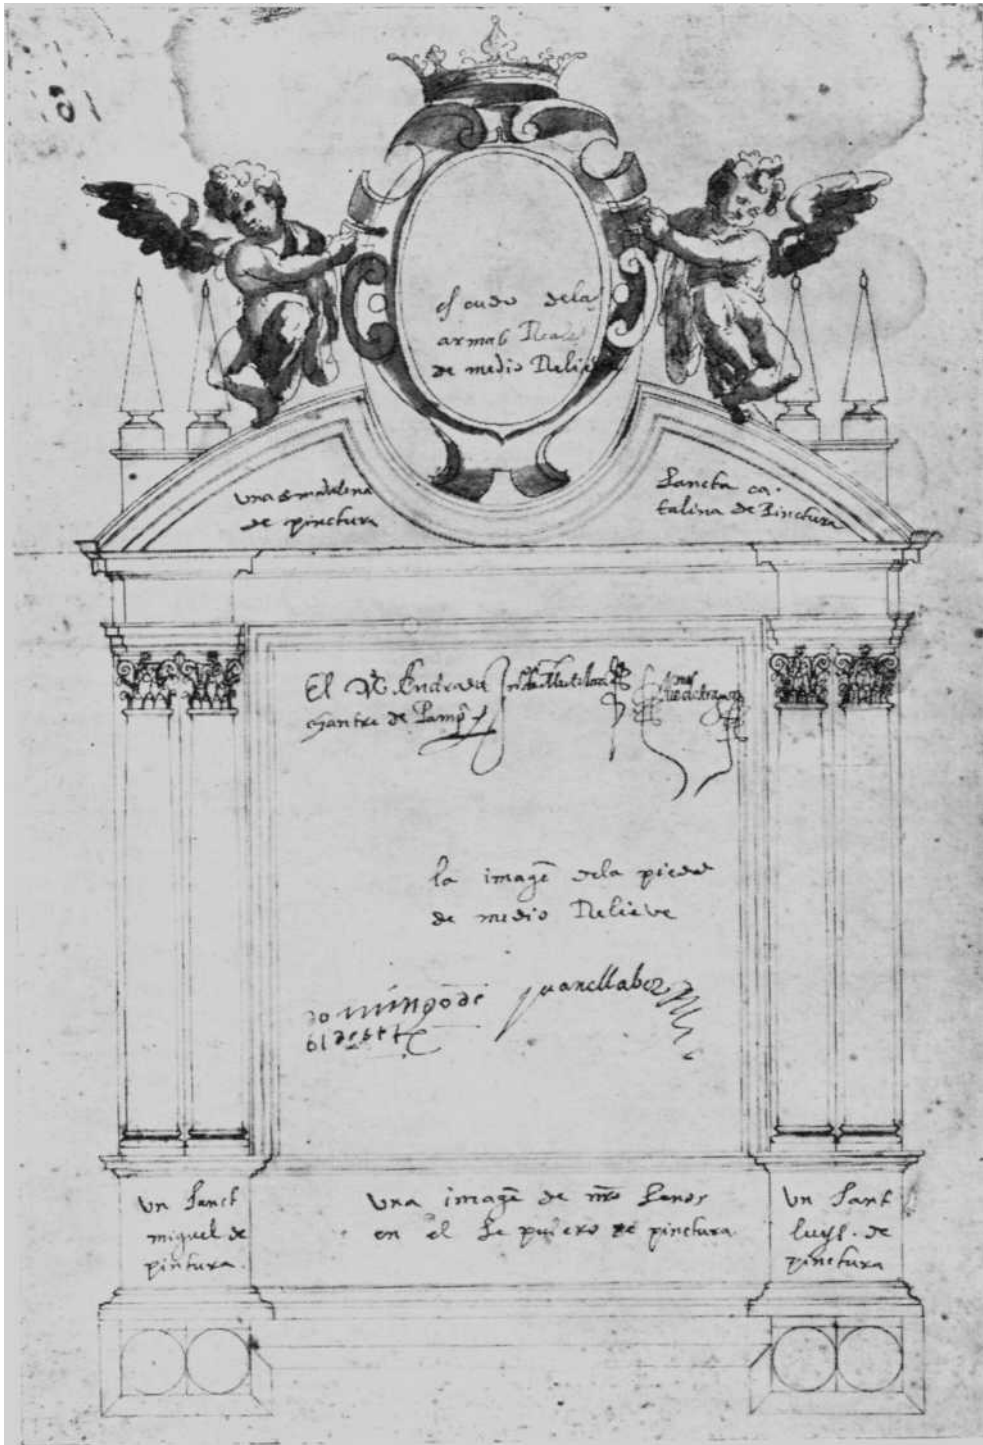 escudo delas
armas Reales
de medio Relieve
una s madalena
de pinctura
sancta ca-
talina de Pinctura
El Andrada
chantre de Pamp
la imagẽ dela piedad
de medio Relieve
domingo de
bidarte
Juan
un sanct
miguel de
pintura.
una imagẽ de nrõ senor
en el sepulcro de pinctura.
un sant
luys. de
pinctura